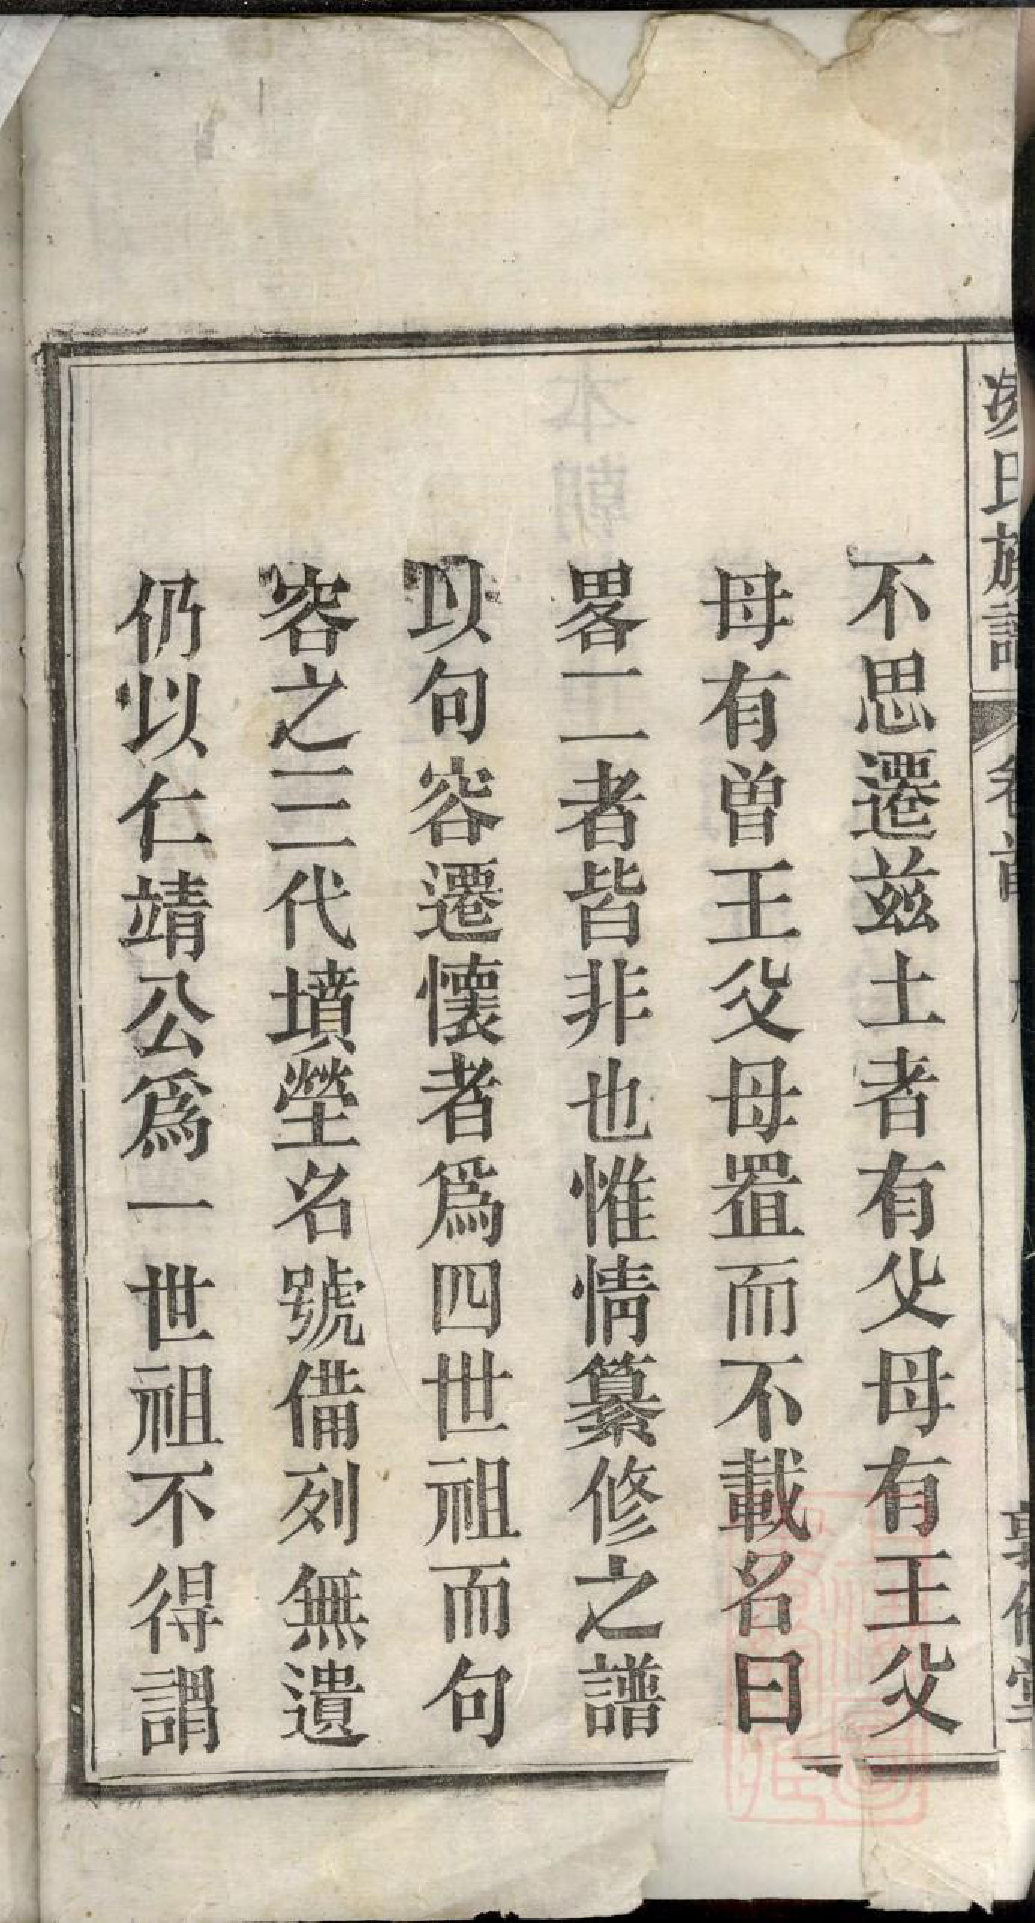 氏族譜 卷首
不思遷茲土者有父母有王父
母有曽王父母置而不載名曰
畧二者皆非也惟情纂修之譜
以句容遷懷者爲四世祖而句
容之三代墳塋名號備列無遺
仍以仁靖公爲一世祖不得謂